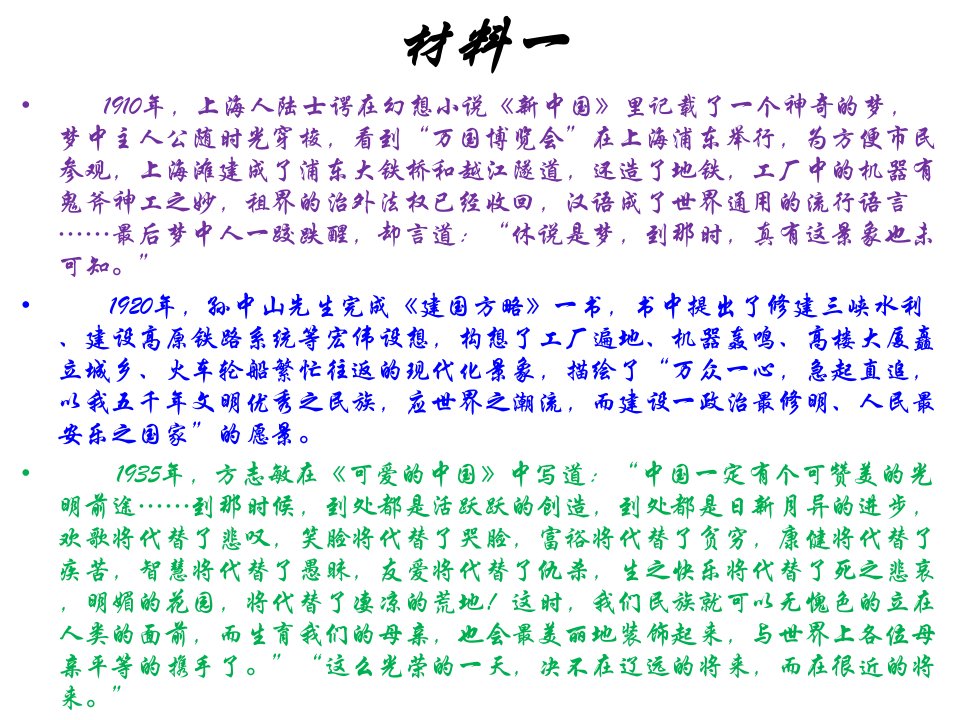 材料一
• 1910年，上海人陆士谔在幻想小说《新中国》里记载了一个神奇的梦，
梦中主人公随时光穿梭，看到“万国博览会”在上海浦东举行，为方便市民
参观，上海滩建成了浦东大铁桥和越江隧道，还造了地铁，工厂中的机器有
鬼斧神工之妙，租界的治外法权已经收回，汉语成了世界通用的流行语言
……最后梦中人一跤跌醒，却言道：“休说是梦，到那时，真有这景象也未
可知。”
• 1920年，孙中山先生完成《建国方略》一书，书中提出了修建三峡水利
、建设高原铁路系统等宏伟设想，构想了工厂遍地、机器轰鸣、高楼大厦矗
立城乡、火车轮船繁忙往返的现代化景象，描绘了“万众一心，急起直追，
以我五千年文明优秀之民族，应世界之潮流，而建设一政治最修明、人民最
安乐之国家”的愿景。
• 1935年，方志敏在《可爱的中国》中写道：“中国一定有个可赞美的光
明前途……到那时候，到处都是活跃跃的创造，到处都是日新月异的进步，
欢歌将代替了悲叹，笑脸将代替了哭脸，富裕将代替了贫穷，康健将代替了
疾苦，智慧将代替了愚昧，友爱将代替了仇杀，生之快乐将代替了死之悲哀
，明媚的花园，将代替了凄凉的荒地！这时，我们民族就可以无愧色的立在
人类的面前，而生育我们的母亲，也会最美丽地装饰起来，与世界上各位母
亲平等的携手了。”“这么光荣的一天，决不在辽远的将来，而在很近的将
来。”